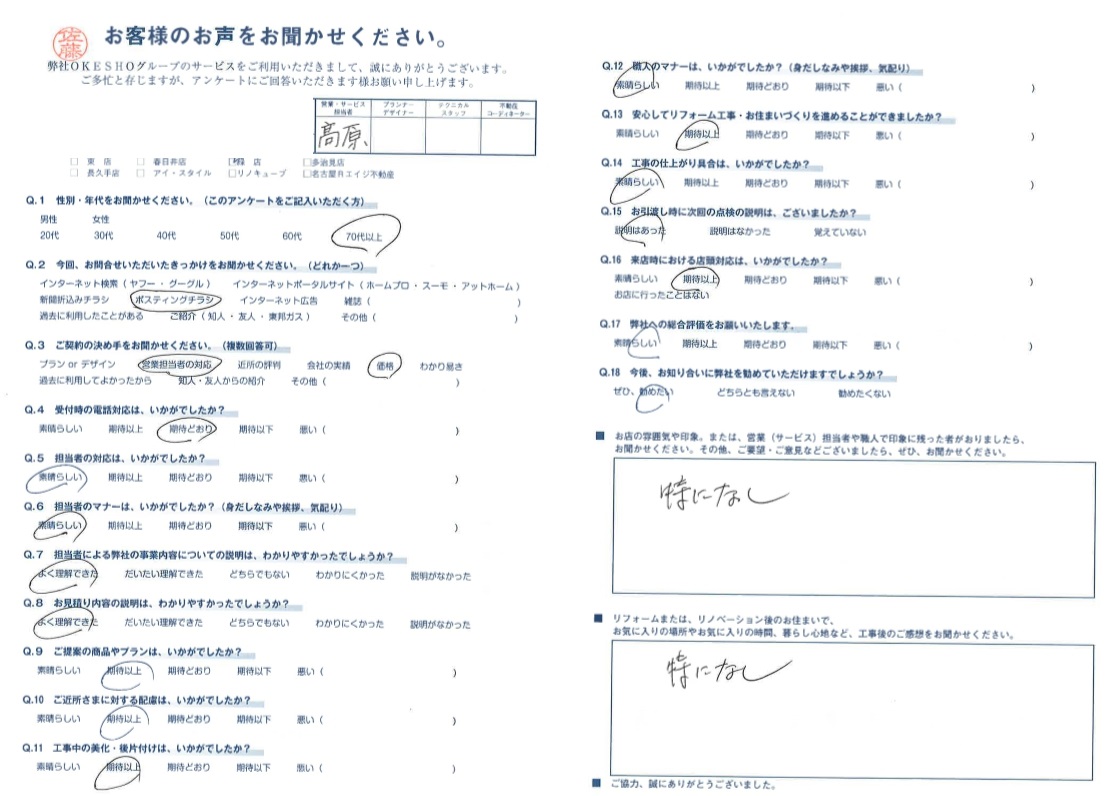 佐藤
お客様のお声をお聞かせください。
弊社OKESHOグループのサービスをご利用いただきまして、誠にありがとうございます。
ご多忙と存じますが、アンケートにご回答いただきます様お願い申し上げます。
営業・サービス担当者 プランナーデザイナー テクニカルスタッフ 不動産コーディネーター
高原
□ 東 店 □ 春日井店 □ 店 □多治見店
□ 長久手店 □ アイ・スタイル □リノキューブ □名古屋Rエイジ不動産
Q.1 性別・年代をお聞かせください。（このアンケートをご記入いただく方）
男性 女性
20代 30代 40代 50代 60代 70代以上
Q.2 今回、お問合せいただいたきっかけをお聞かせください。（どれか一つ）
インターネット検索（ ヤフー ・ グーグル ） インターネットポータルサイト（ ホームプロ ・ スーモ ・ アットホーム ）
新聞折込みチラシ ポスティングチラシ インターネット広告 雑誌（ ）
過去に利用したことがある ご紹介（ 知人 ・ 友人 ・ 東邦ガス ） その他（ ）
Q.3 ご契約の決め手をお聞かせください。（複数回答可）
プラン or デザイン 営業担当者の対応 近所の評判 会社の実績 価格 わかり易さ
過去に利用してよかったから 知人・友人からの紹介 その他（ ）
Q.4 受付時の電話対応は、いかがでしたか？
素晴らしい 期待以上 期待どおり 期待以下 悪い（ ）
Q.5 担当者の対応は、いかがでしたか？
素晴らしい 期待以上 期待どおり 期待以下 悪い（ ）
Q.6 担当者のマナーは、いかがでしたか？（身だしなみや挨拶、気配り）
素晴らしい 期待以上 期待どおり 期待以下 悪い（ ）
Q.7 担当者による弊社の事業内容についての説明は、わかりやすかったでしょうか？
よく理解できた だいたい理解できた どちらでもない わかりにくかった 説明がなかった
Q.8 お見積り内容の説明は、わかりやすかったでしょうか？
よく理解できた だいたい理解できた どちらでもない わかりにくかった 説明がなかった
Q.9 ご提案の商品やプランは、いかがでしたか？
素晴らしい 期待以上 期待どおり 期待以下 悪い（ ）
Q.10 ご近所さまに対する配慮は、いかがでしたか？
素晴らしい 期待以上 期待どおり 期待以下 悪い（ ）
Q.11 工事中の美化・後片付けは、いかがでしたか？
素晴らしい 期待以上 期待どおり 期待以下 悪い（ ）
Q.12 職人のマナーは、いかがでしたか？（身だしなみや挨拶、気配り）
素晴らしい 期待以上 期待どおり 期待以下 悪い（ ）
Q.13 安心してリフォーム工事・お住まいづくりを進めることができましたか？
素晴らしい 期待以上 期待どおり 期待以下 悪い（ ）
Q.14 工事の仕上がり具合は、いかがでしたか？
素晴らしい 期待以上 期待どおり 期待以下 悪い（ ）
Q.15 お引渡し時に次回の点検の説明は、ございましたか？
説明はあった 説明はなかった 覚えていない
Q.16 来店時における店頭対応は、いかがでしたか？
素晴らしい 期待以上 期待どおり 期待以下 悪い（ ）
お店に行ったことはない
Q.17 弊社への総合評価をお願いいたします。
素晴らしい 期待以上 期待どおり 期待以下 悪い（ ）
Q.18 今後、お知り合いに弊社を勧めていただけますでしょうか？
ぜひ、勧めたい どちらとも言えない 勧めたくない
■ お店の雰囲気や印象。または、営業（サービス）担当者や職人で印象に残った者がおりましたら、
お聞かせください。その他、ご要望・ご意見などございましたら、ぜひ、お聞かせください。
特になし
■ リフォームまたは、リノベーション後のお住まいで、
お気に入りの場所やお気に入りの時間、暮らし心地など、工事後のご感想をお聞かせください。
特になし
■ ご協力、誠にありがとうございました。